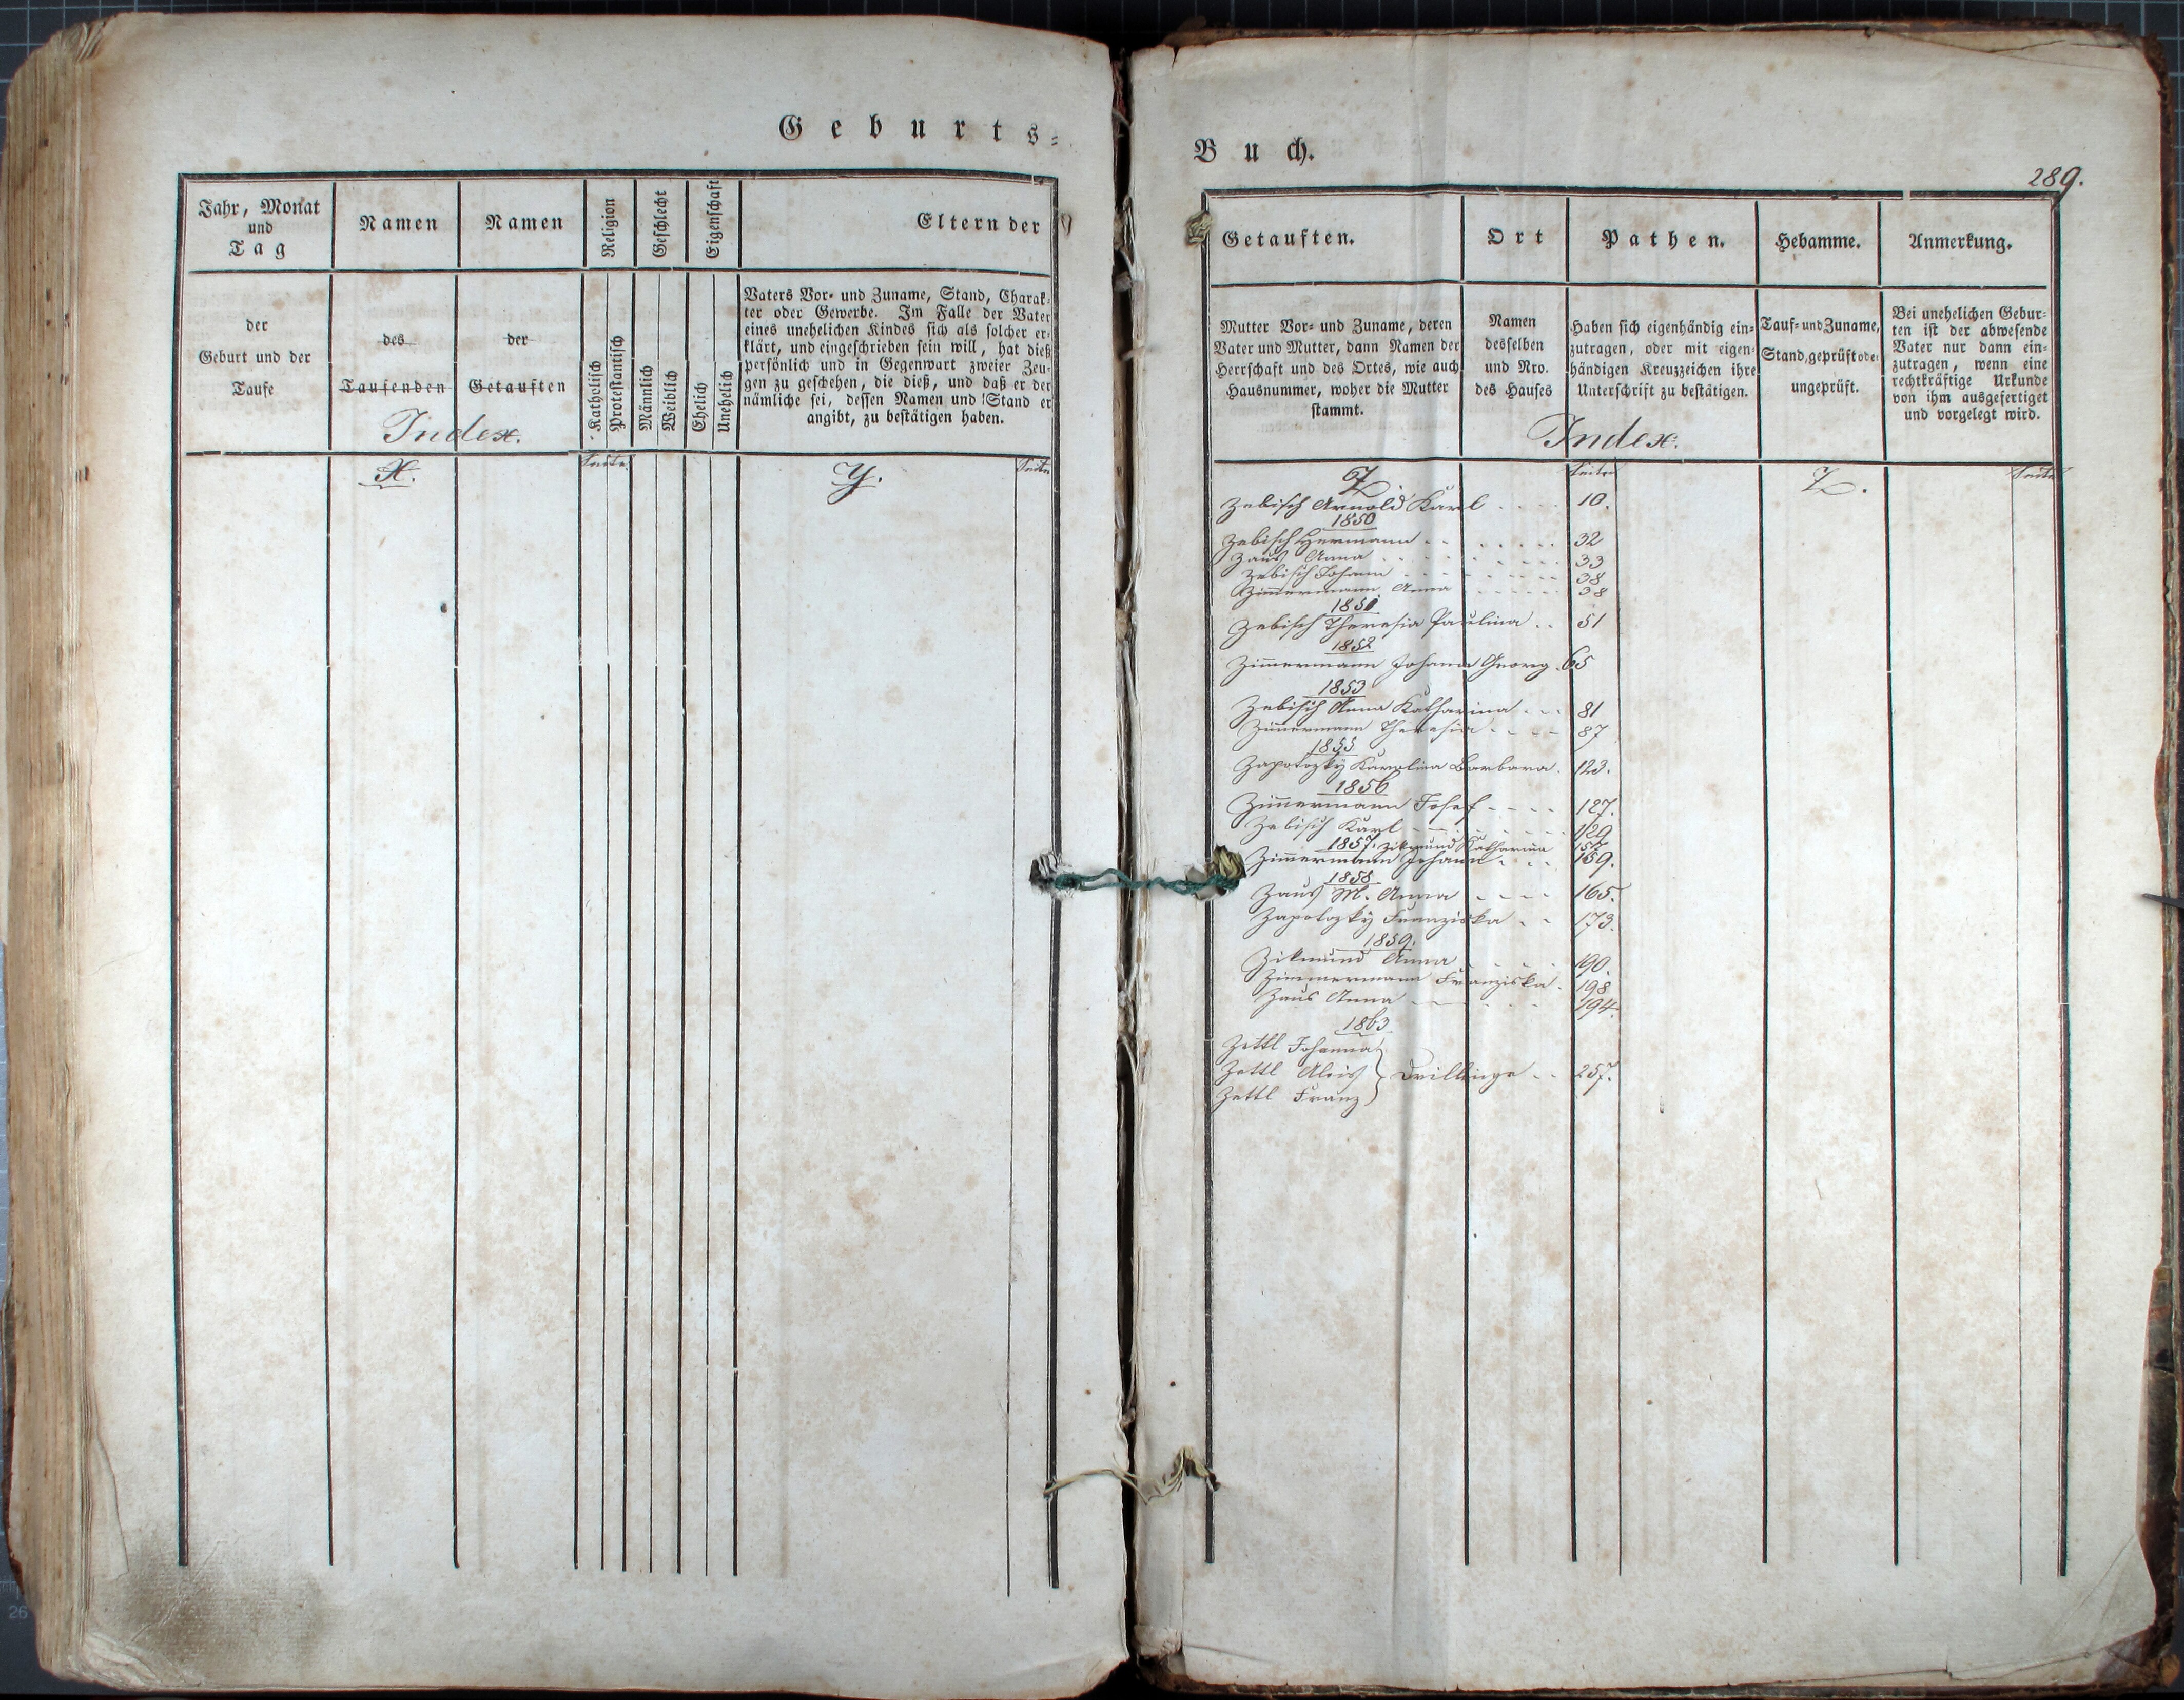 Geburts=
Jahr, Monat
und
Tag
Namen
Namen
Religion
Geschlecht
Eigenschaft
Eltern der
der
Geburt und der
Taufe
des
Taufenden
der
Getauften
Katholisch
Protestantisch
Männlich
Weiblich
Ehelich
Unehelich
Vaters Vor- und Zuname, Stand, Charak-
ter oder Gewerbe. Im Falle der Vater
eines unehelichen Kindes sich als solcher er-
klärt, und eingeschrieben sein will, hat dieß
persönlich und in Gegenwart zweier Zeu-
gen zu geschehen, die dieß, und daß er der
nämliche sei, dessen Namen und Stand er
angibt, zu bestätigen haben.
Index.
X.
Seite
Y.
Seite
Buch.
289.
Getauften.
Ort
Pathen.
Hebamme.
Anmerkung.
Mutter Vor- und Zuname, deren
Vater und Mutter, dann Namen der
Herrschaft und des Ortes, wie auch
Hausnummer, woher die Mutter
stammt.
Namen
desselben
und Nro.
des Hauses
Haben sich eigenhändig ein-
zutragen, oder mit eigen-
händigen Kreuzzeichen ihre
Unterschrift zu bestätigen.
Tauf- und Zuname,
Stand, geprüft oder
ungeprüft.
Bei unehelichen Gebur-
ten ist der abwesende
Vater nur dann ein-
zutragen, wenn eine
rechtkräftige Urkunde
von ihm ausgefertiget
und vorgelegt wird.
Index.
Z.
Seite
Z.
Seite
Zebisch Arnold Karl . . . . 10.
1850
Zebisch Hermann . . . . . . 32
Zaus Anna . . . . . . 33
Zebisch Johann . . . . . . 38
Zimmermann Anna . . . . . . 38
1851
Zebisch Theresia Paulina . . 51
1852
Zimmermann Johann Georg . 65
1853
Zebisch Anna Katharina . . . 81
Zimmermann Theresia . . . . 87
1855
Zapotozky Karolina Barbara . 123.
1856
Zimmermann Josef . . . . 127.
Zebisch Karl . . . . . . 129
1857. Zikmund Katharina 157
Zimmermann Johann . . . 159.
1858
Zaus M. Anna . . . . 165.
Zapotozky Franziska . . 173.
1859.
Zikmund Anna . . . . 190.
Zimmermann Franziska . 198
Zaus Anna . . . . 194.
1863
Zettl Johanna
Zettl Alois } Drillinge . . 257.
Zettl Franz